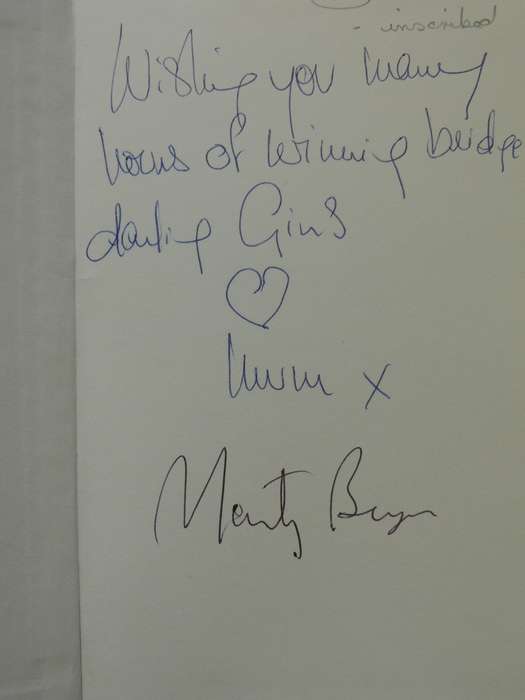 - inscribed
Wishing you many
hours of winning bridge
darling Gins
♡
Mum x
Marty Bergen